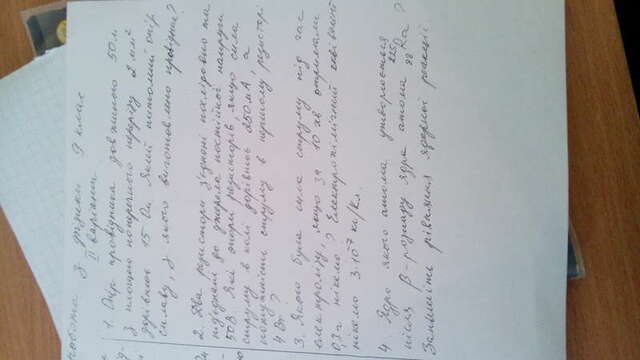 робота з фізики 9 клас
II варіант
1. Опір провідника довжиною 50м
з площею поперечного перерізу 2 мм²
дорівнює 15 Ом Який питомий опір
сплаву, з якого виготовлено провідник?
2. Два резистори з'єднані послідовно та
під'єднані до джерела постійної напруги
50В Які опори резисторів, якщо сила
струму в колі дорівнює 250мА, а
потужність струму в першому резисторі
4 Вт?
3. Якого була сила струму під час
електролізу, якщо за 10 хв отримали
0,3г нікелю? Електрохімічний еквівалент
нікелю 3·10⁻⁷ кг/Кл.
4. Ядро якого атома утворюється
після β-розпаду ядра атома ²²⁵₈₈Ra ?
Запишіть рівняння ядерної реакції